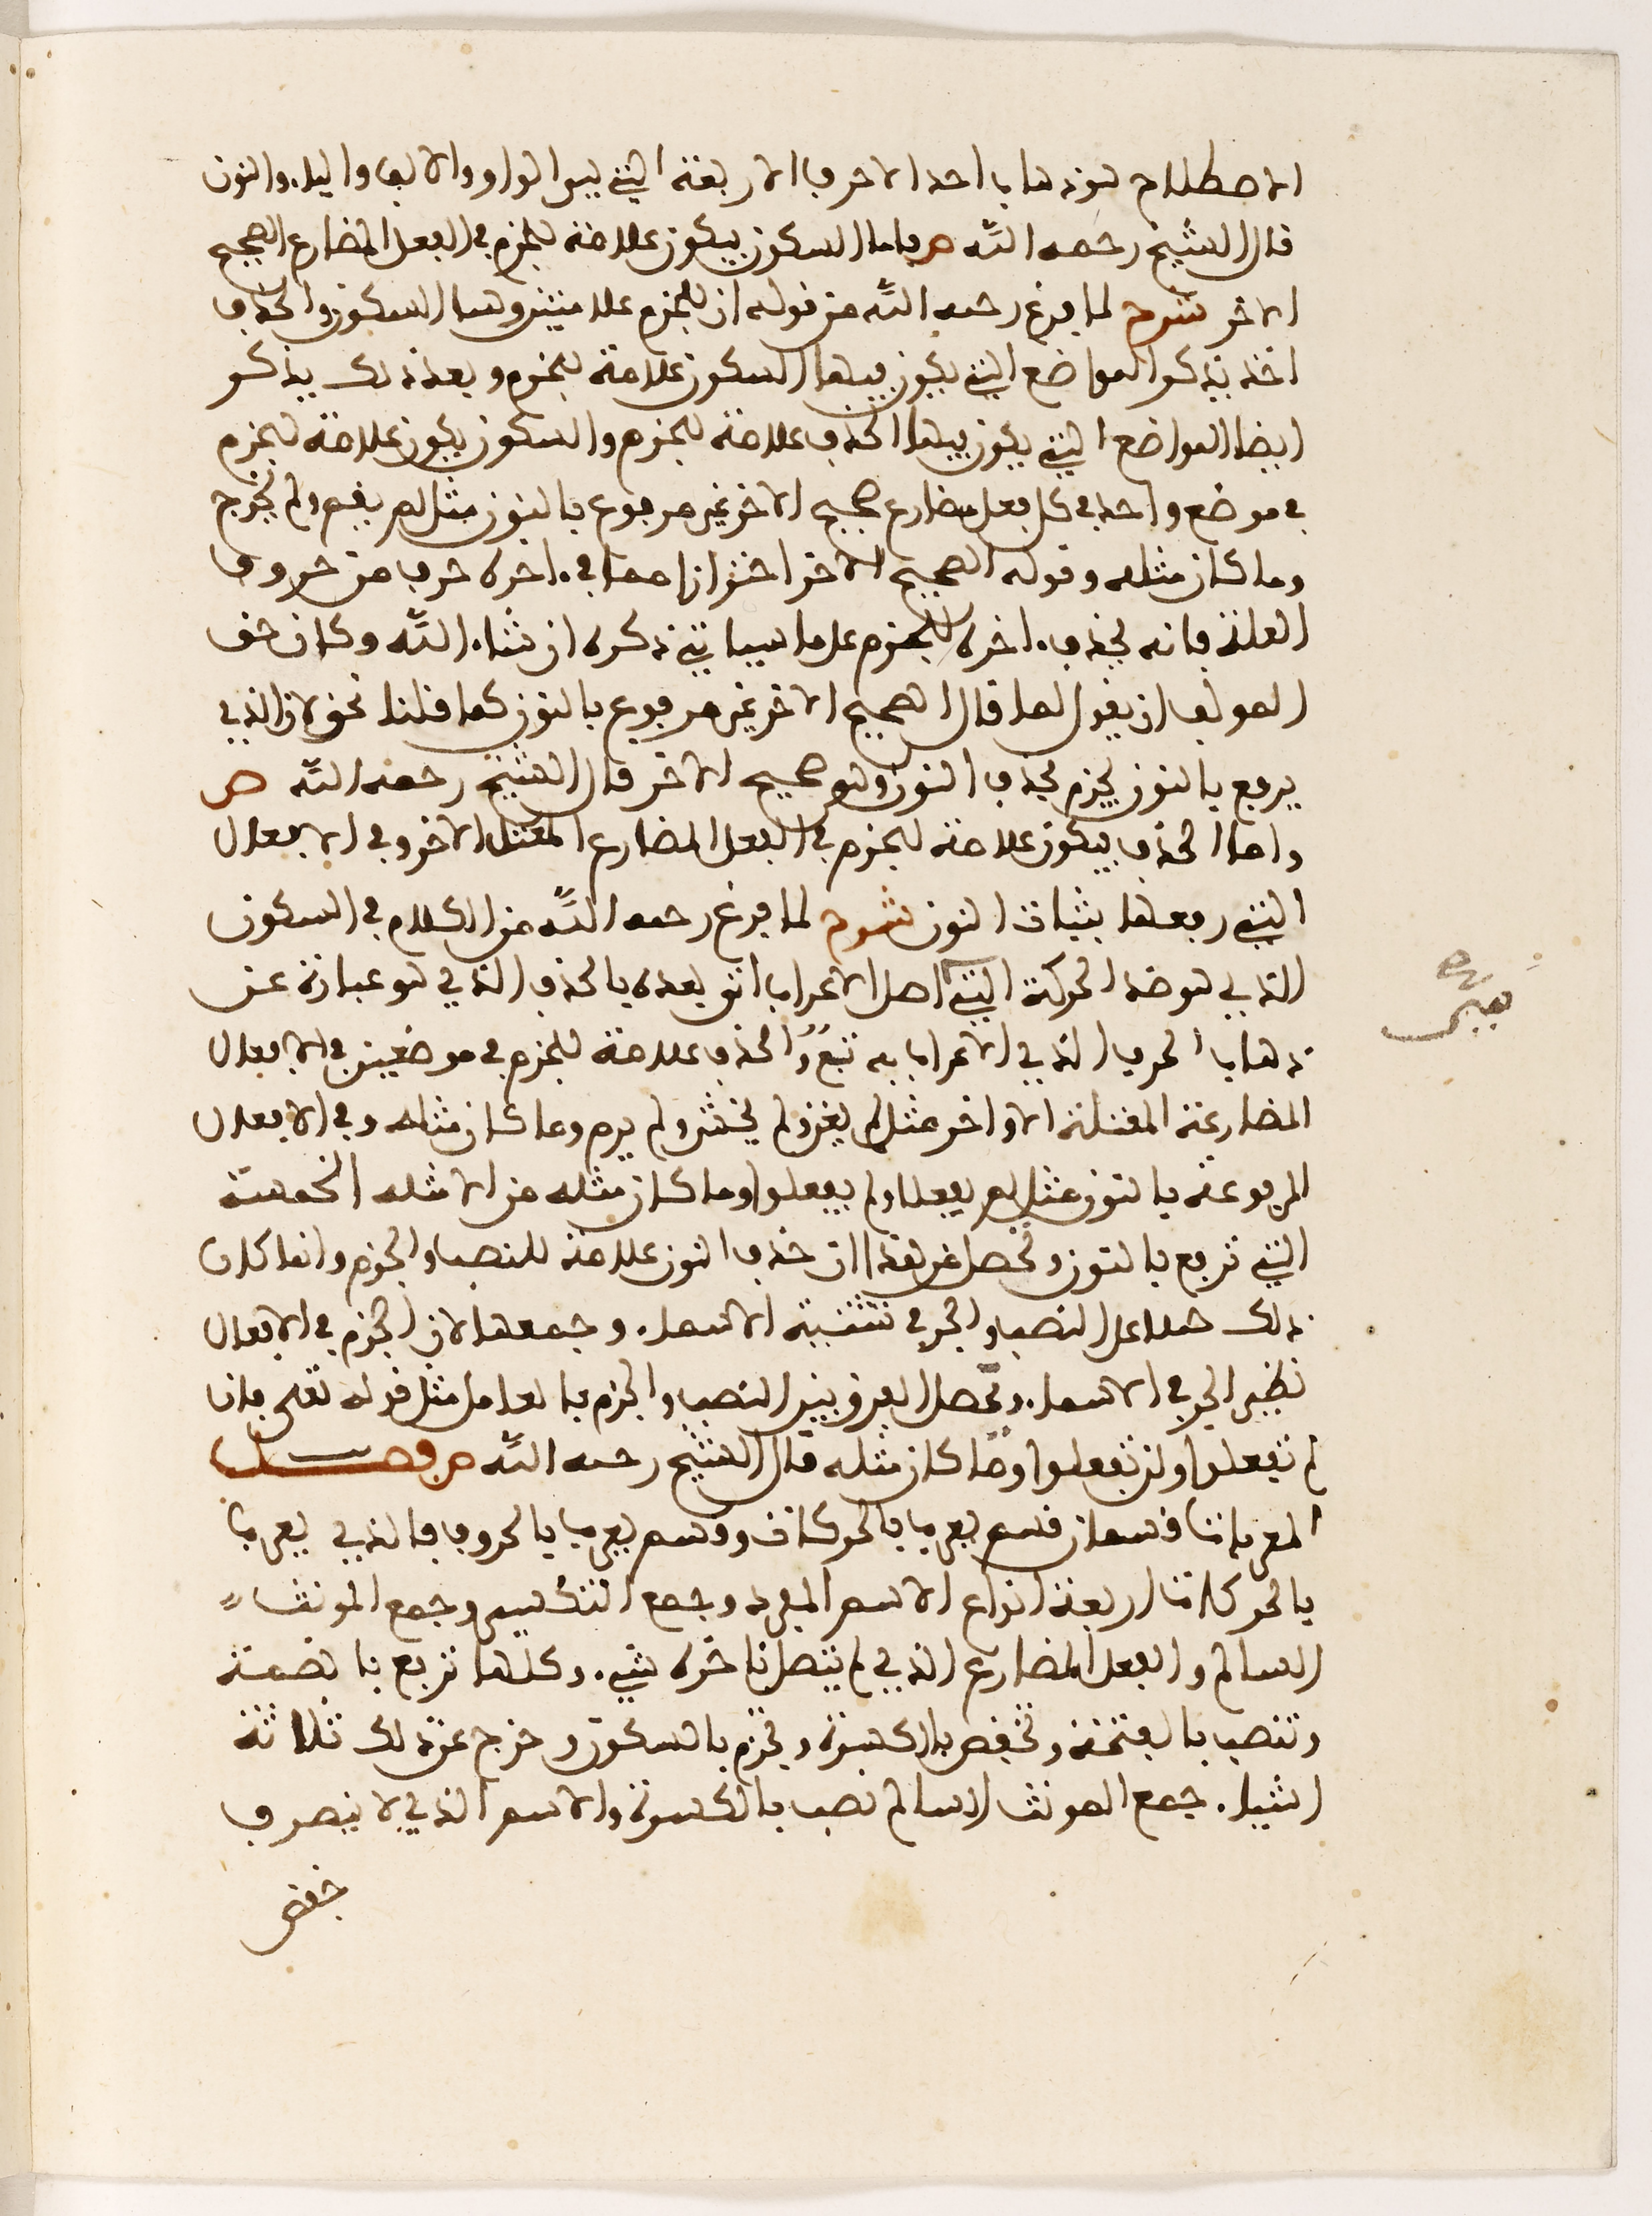 الاصطلاح هو ذهاب احد الاحرف الاربعة التي هي الواو والالف والياء والنون
قال الشيخ رحمه الله ص فاما السكون فيكون علامة للجزم في الفعل المضارع الصحيح
الاخر شرح لما فرغ رحمه الله من قوله ان للجزم علامتين وهما السكون والحذف
اخذ يذكر المواضع التي يكون فيها السكون علامة للجزم وبعد ذلك يذكر
ايضا المواضع التي يكون فيها الحذف علامة للجزم والسكون يكون علامة للجزم
في موضع واحد في كل فعل مضارع صحيح الاخر غير مرفوع بالنون مثل لم يقم ولم يخرج
وما كان مثله وقوله الصحيح الاخر احترازا مما في ءاخره حرف من حروف
العلة فانه يحذف ءاخره للجزم على ما سياتي ذكره ان شاء الله وكان حق
المولف ان يقول لما قال الصحيح الاخر غير مرفوع بالنون كما قلنا نحن لان الذي
يرفع بالنون يجزم بحذف النون وهو صحيح الاخر قال الشيخ رحمه الله ص
واما الحذف فيكون علامة للجزم في الفعل المضارع المعتل الاخر وفي الافعال
التي رفعها بثبات النون شرح لما فرغ رحمه الله من الكلام في السكون
الذي هو ضد الحركة التي اصل الاعراب اتى بعده بالحذف الذي هو عبارة عن
ذهاب الحرف الذي الاعراب به تبع والحذف علامة للجزم في موضعين في الافعال
المضارعة المعتلة الاواخر مثل لم يغز ولم يخش ولم يرم وما كان مثله وفي الافعال
المرفوعة بالنون مثل لم يفعلا ولم يفعلوا وما كان مثله من الامثلة الخمسة
التي ترفع بالنون وتحصل من هذا ان حذف النون علامة للنصب والجزم وانما كان
ذلك حملا على النصب والجر في تثنية الاسماء وجمعها لان الجزم في الافعال
نظير الجر في الاسماء ويحصل الفرق بين النصب والجزم بالعامل مثل قوله تعلى فان
لم تفعلوا ولن تفعلوا وما كان مثله قال الشيخ رحمه الله ص فصل
المعربات قسمان قسم يعرب بالحركات وقسم يعرب بالحروف فالذي يعرب
بالحركات اربعة انواع الاسم المفرد وجمع التكسير وجمع المونث
السالم والفعل المضارع الذي لم يتصل باخره شيء وكلها ترفع بالضمة
وتنصب بالفتحة وتخفض بالكسرة وتجزم بالسكون وخرج عن ذلك ثلاثة
اشياء جمع المونث السالم نصب بالكسرة والاسم الذي لا ينصرف
خفض